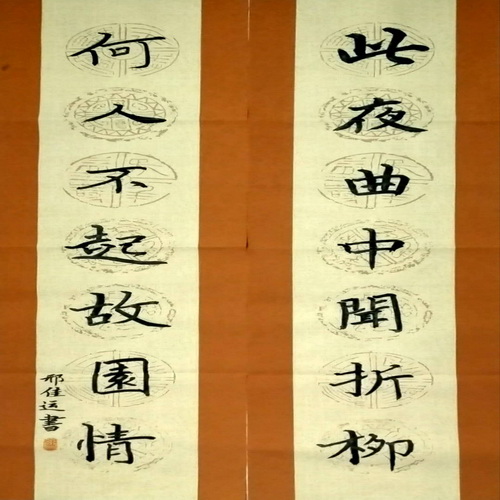 此夜曲中聞折柳
何人不起故園情
邢佳运書